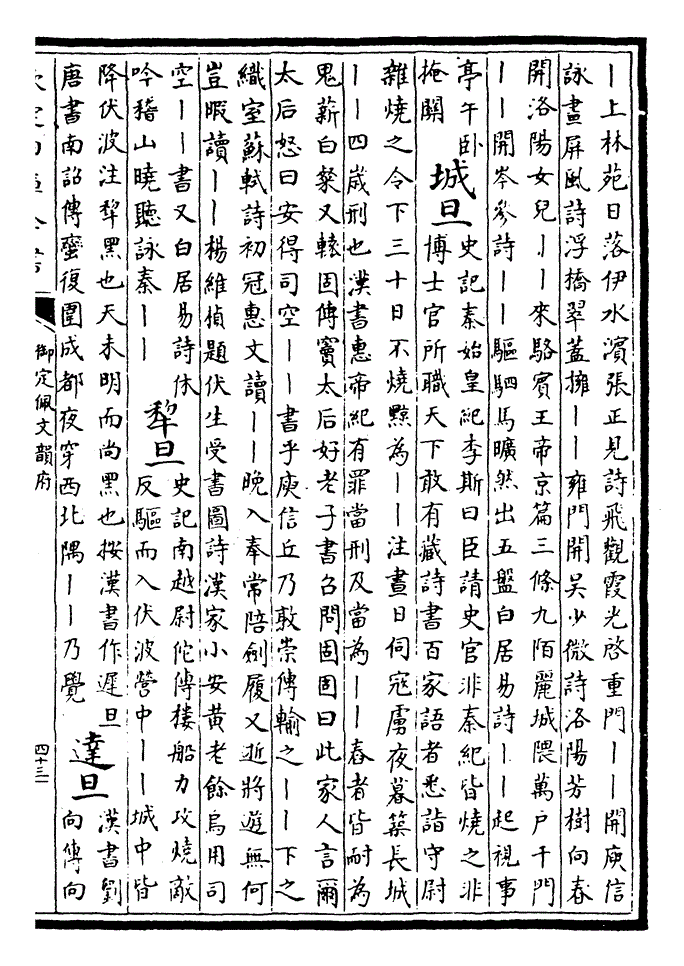 丨上林苑日落伊水濱張正見詩飛觀霞光啓重門丨丨開庾信
詠畫屏風詩浮橋翠蓋擁丨丨雍門開吳少微詩洛陽芳樹向春
開洛陽女兒丨丨來駱賓王帝京篇三條九陌麗城隈萬户千門
丨丨開岑參詩丨丨驅駟馬曠然出五盤白居易詩丨丨起視事
亭午卧
掩關
城旦
史記秦始皇紀李斯曰臣請史官非秦紀皆燒之非
博士官所職天下敢有藏詩書百家語者悉詣守尉
雜燒之令下三十日不燒黥為丨丨注晝日伺寇虜夜暮築長城
丨丨四歲刑也漢書惠帝紀有罪當刑及當為丨丨舂者皆耐為
鬼薪白粲又轅固傳竇太后好老子書召問固固曰此家人言爾
太后怒曰安得司空丨丨書乎庾信丘乃敦崇傳輸之丨丨下之
織室蘇軾詩初冠惠文讀丨丨晚入奉常陪劍履又逝將遊無何
豈暇讀丨丨楊維楨題伏生受書圖詩漢家小安黄老餘烏用司
空丨丨書又白居易詩休
吟稽山曉聽詠秦丨丨
犂旦
史記南越尉佗傳樓船力攻燒敵
反驅而入伏波營中丨丨城中皆
降伏波注犂黑也天未明而尚黑也按漢書作遲旦
唐書南詔傳蠻復圍成都夜穿西北隅丨丨乃覺
達旦
漢書劉
向傳向
御定佩文韻府
四十三